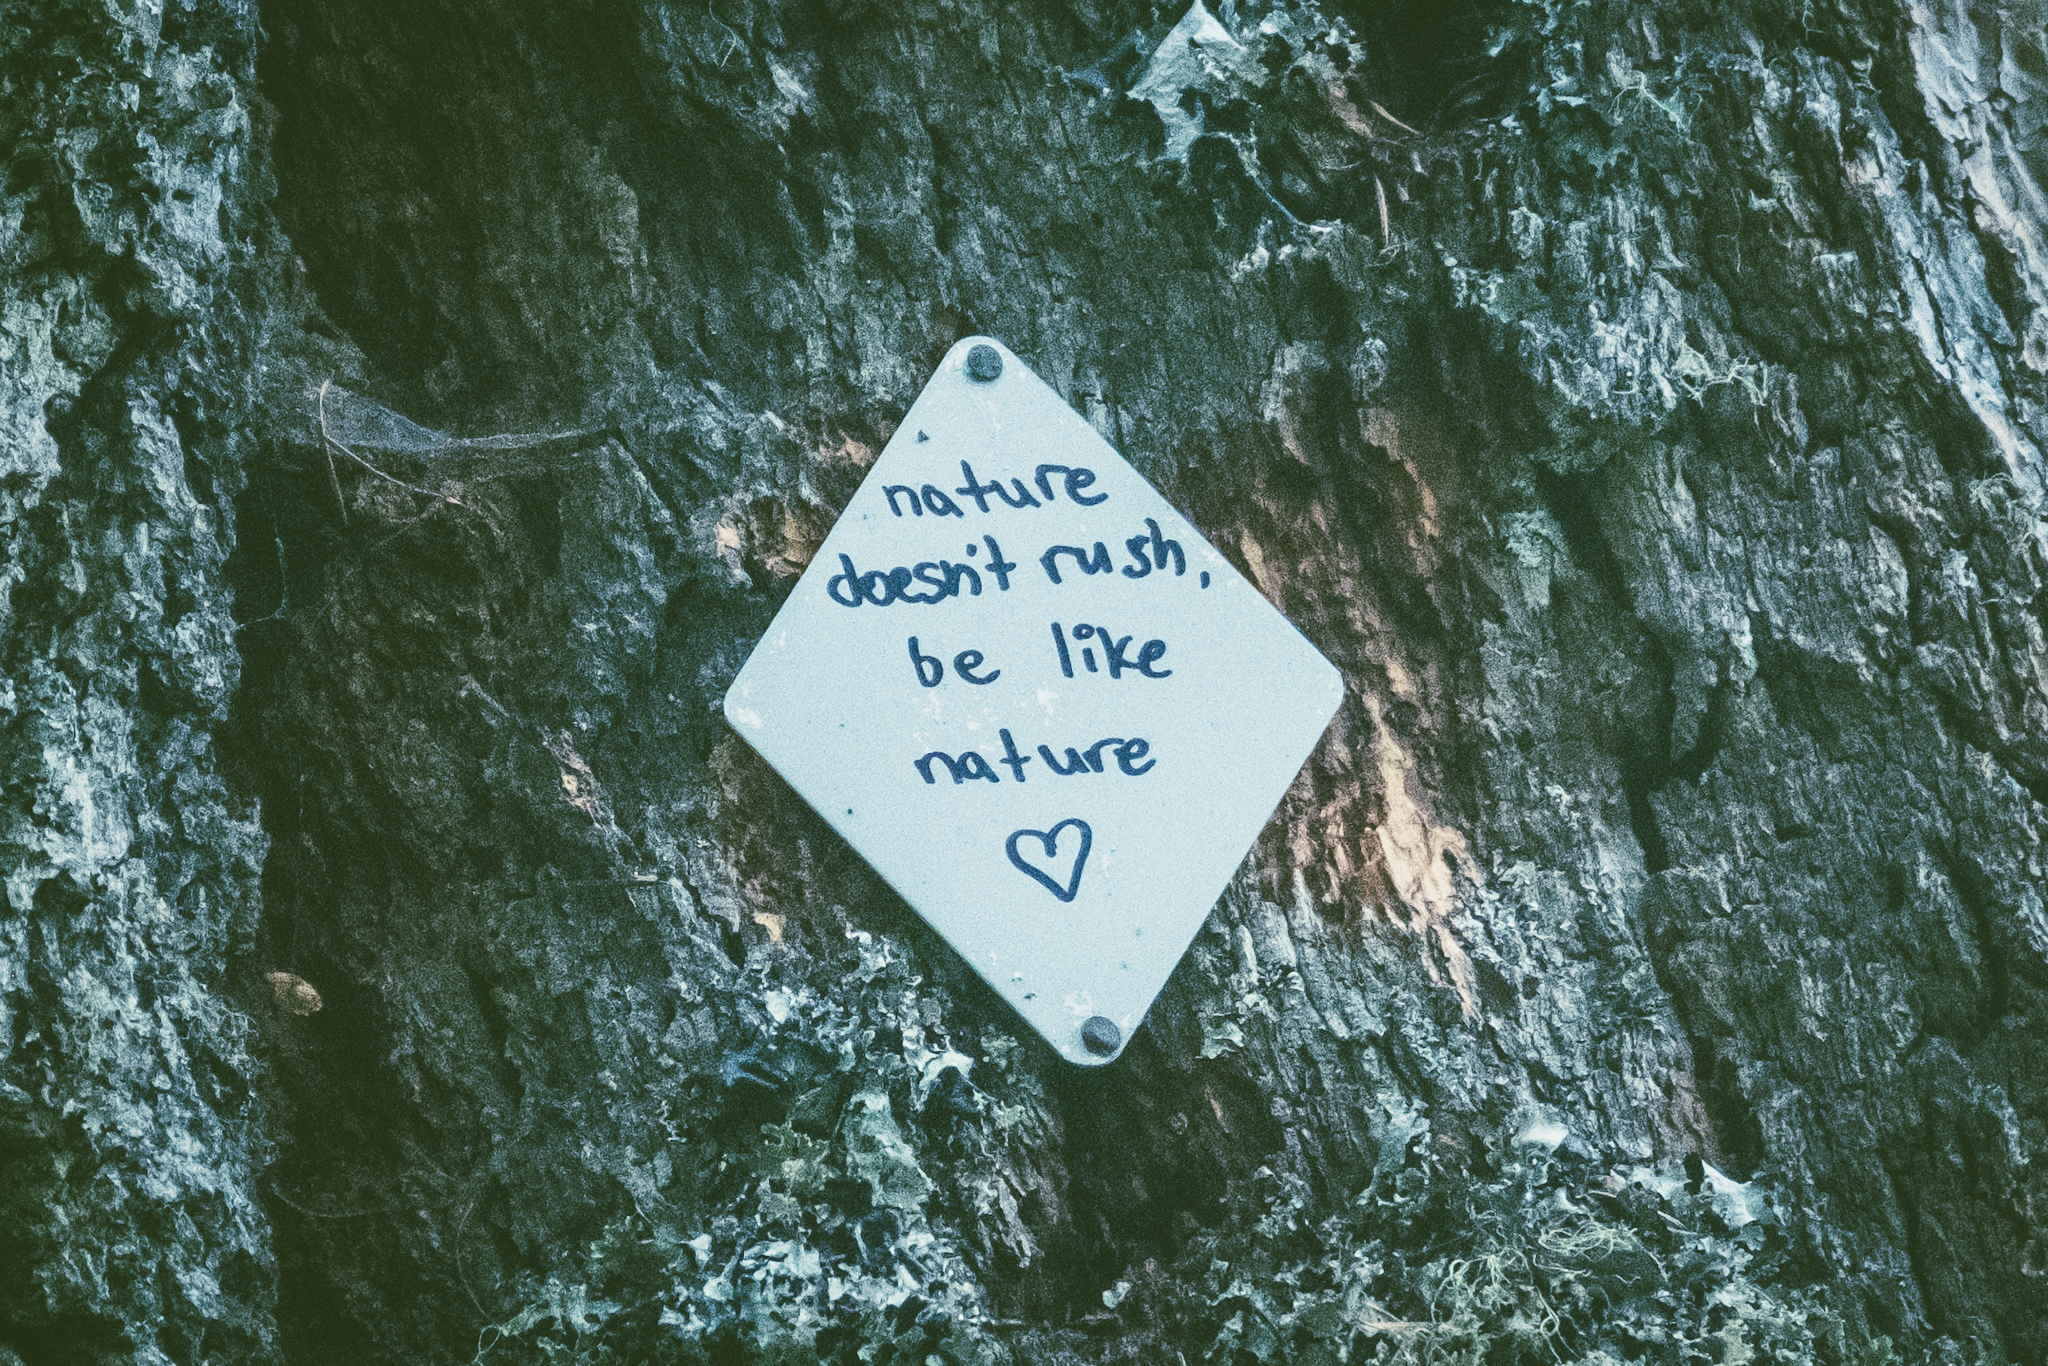 nature
doesn't rush,
be like
nature